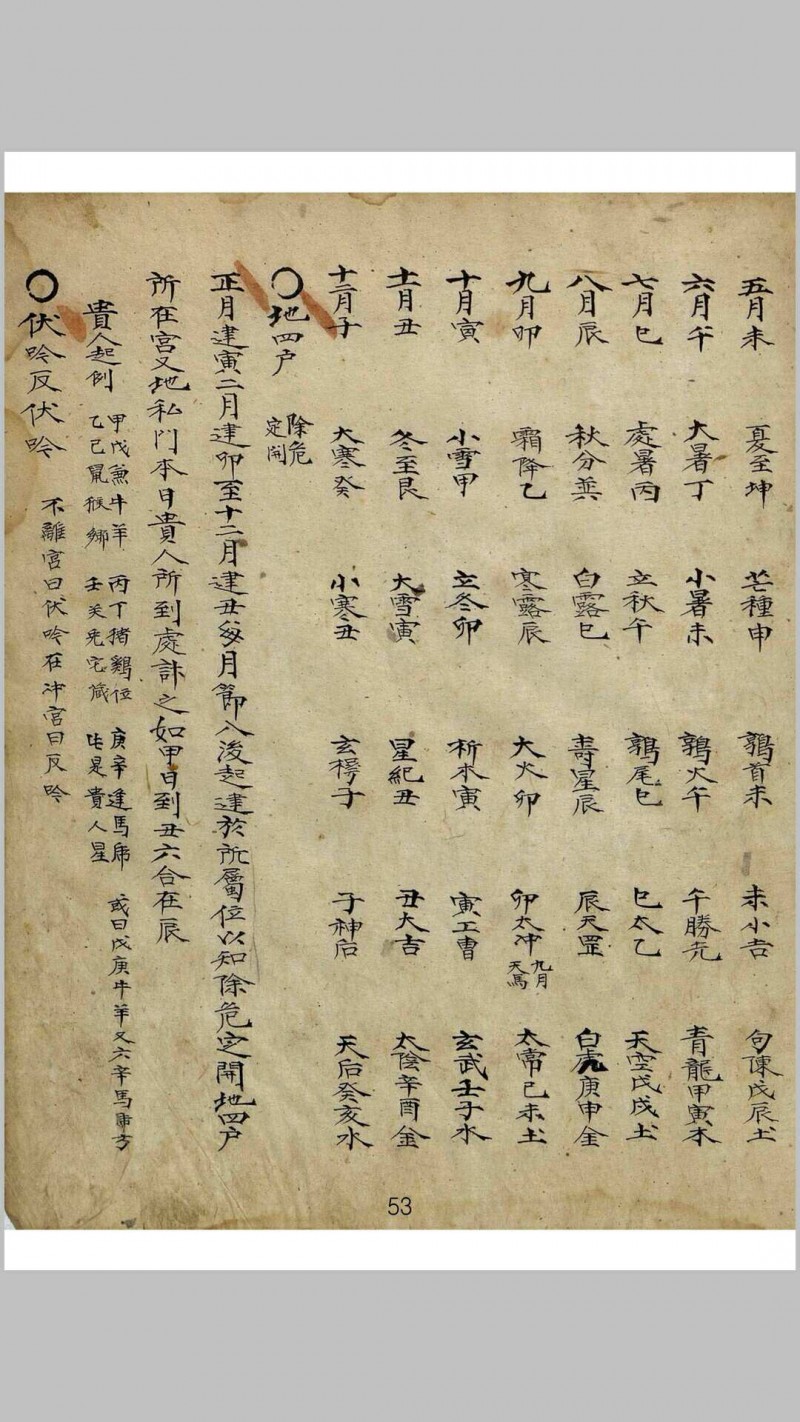 五月未 夏至坤 芒種申 鶉首未 未小吉 句陳戊辰土
六月午 大暑丁 小暑未 鶉火午 午勝光 青龍甲寅木
七月巳 處暑丙 立秋午 鶉尾巳 巳太乙 天空戊戌土
八月辰 秋分巽 白露巳 壽星辰 辰天罡 白虎庚申金
九月卯 霜降乙 寒露辰 大火卯 卯太冲 九月天馬 太常己未土
十月寅 小雪甲 立冬卯 析木寅 寅工曹 玄武壬子水
十一月丑 冬至艮 大雪寅 星紀丑 丑大吉 太陰辛酉金
十二月子 大寒癸 小寒丑 玄枵子 子神后 天后癸亥水
〇地四户 除危定開
正月建寅二月建卯至十二月建丑每月節入後起建於所屬位以知除危定開地四户
所在宮又地私門本日貴人所到處詳之如甲日到丑六合在辰
貴人起例 甲戊兼牛羊 乙己鼠猴鄉 丙丁猪鷄位 壬癸兔宅藏 庚辛逢馬虎 此是貴人星 或曰戊庚牛羊又六辛馬庫方
〇伏吟反伏吟 不離宮曰伏吟在冲宮曰反吟
53